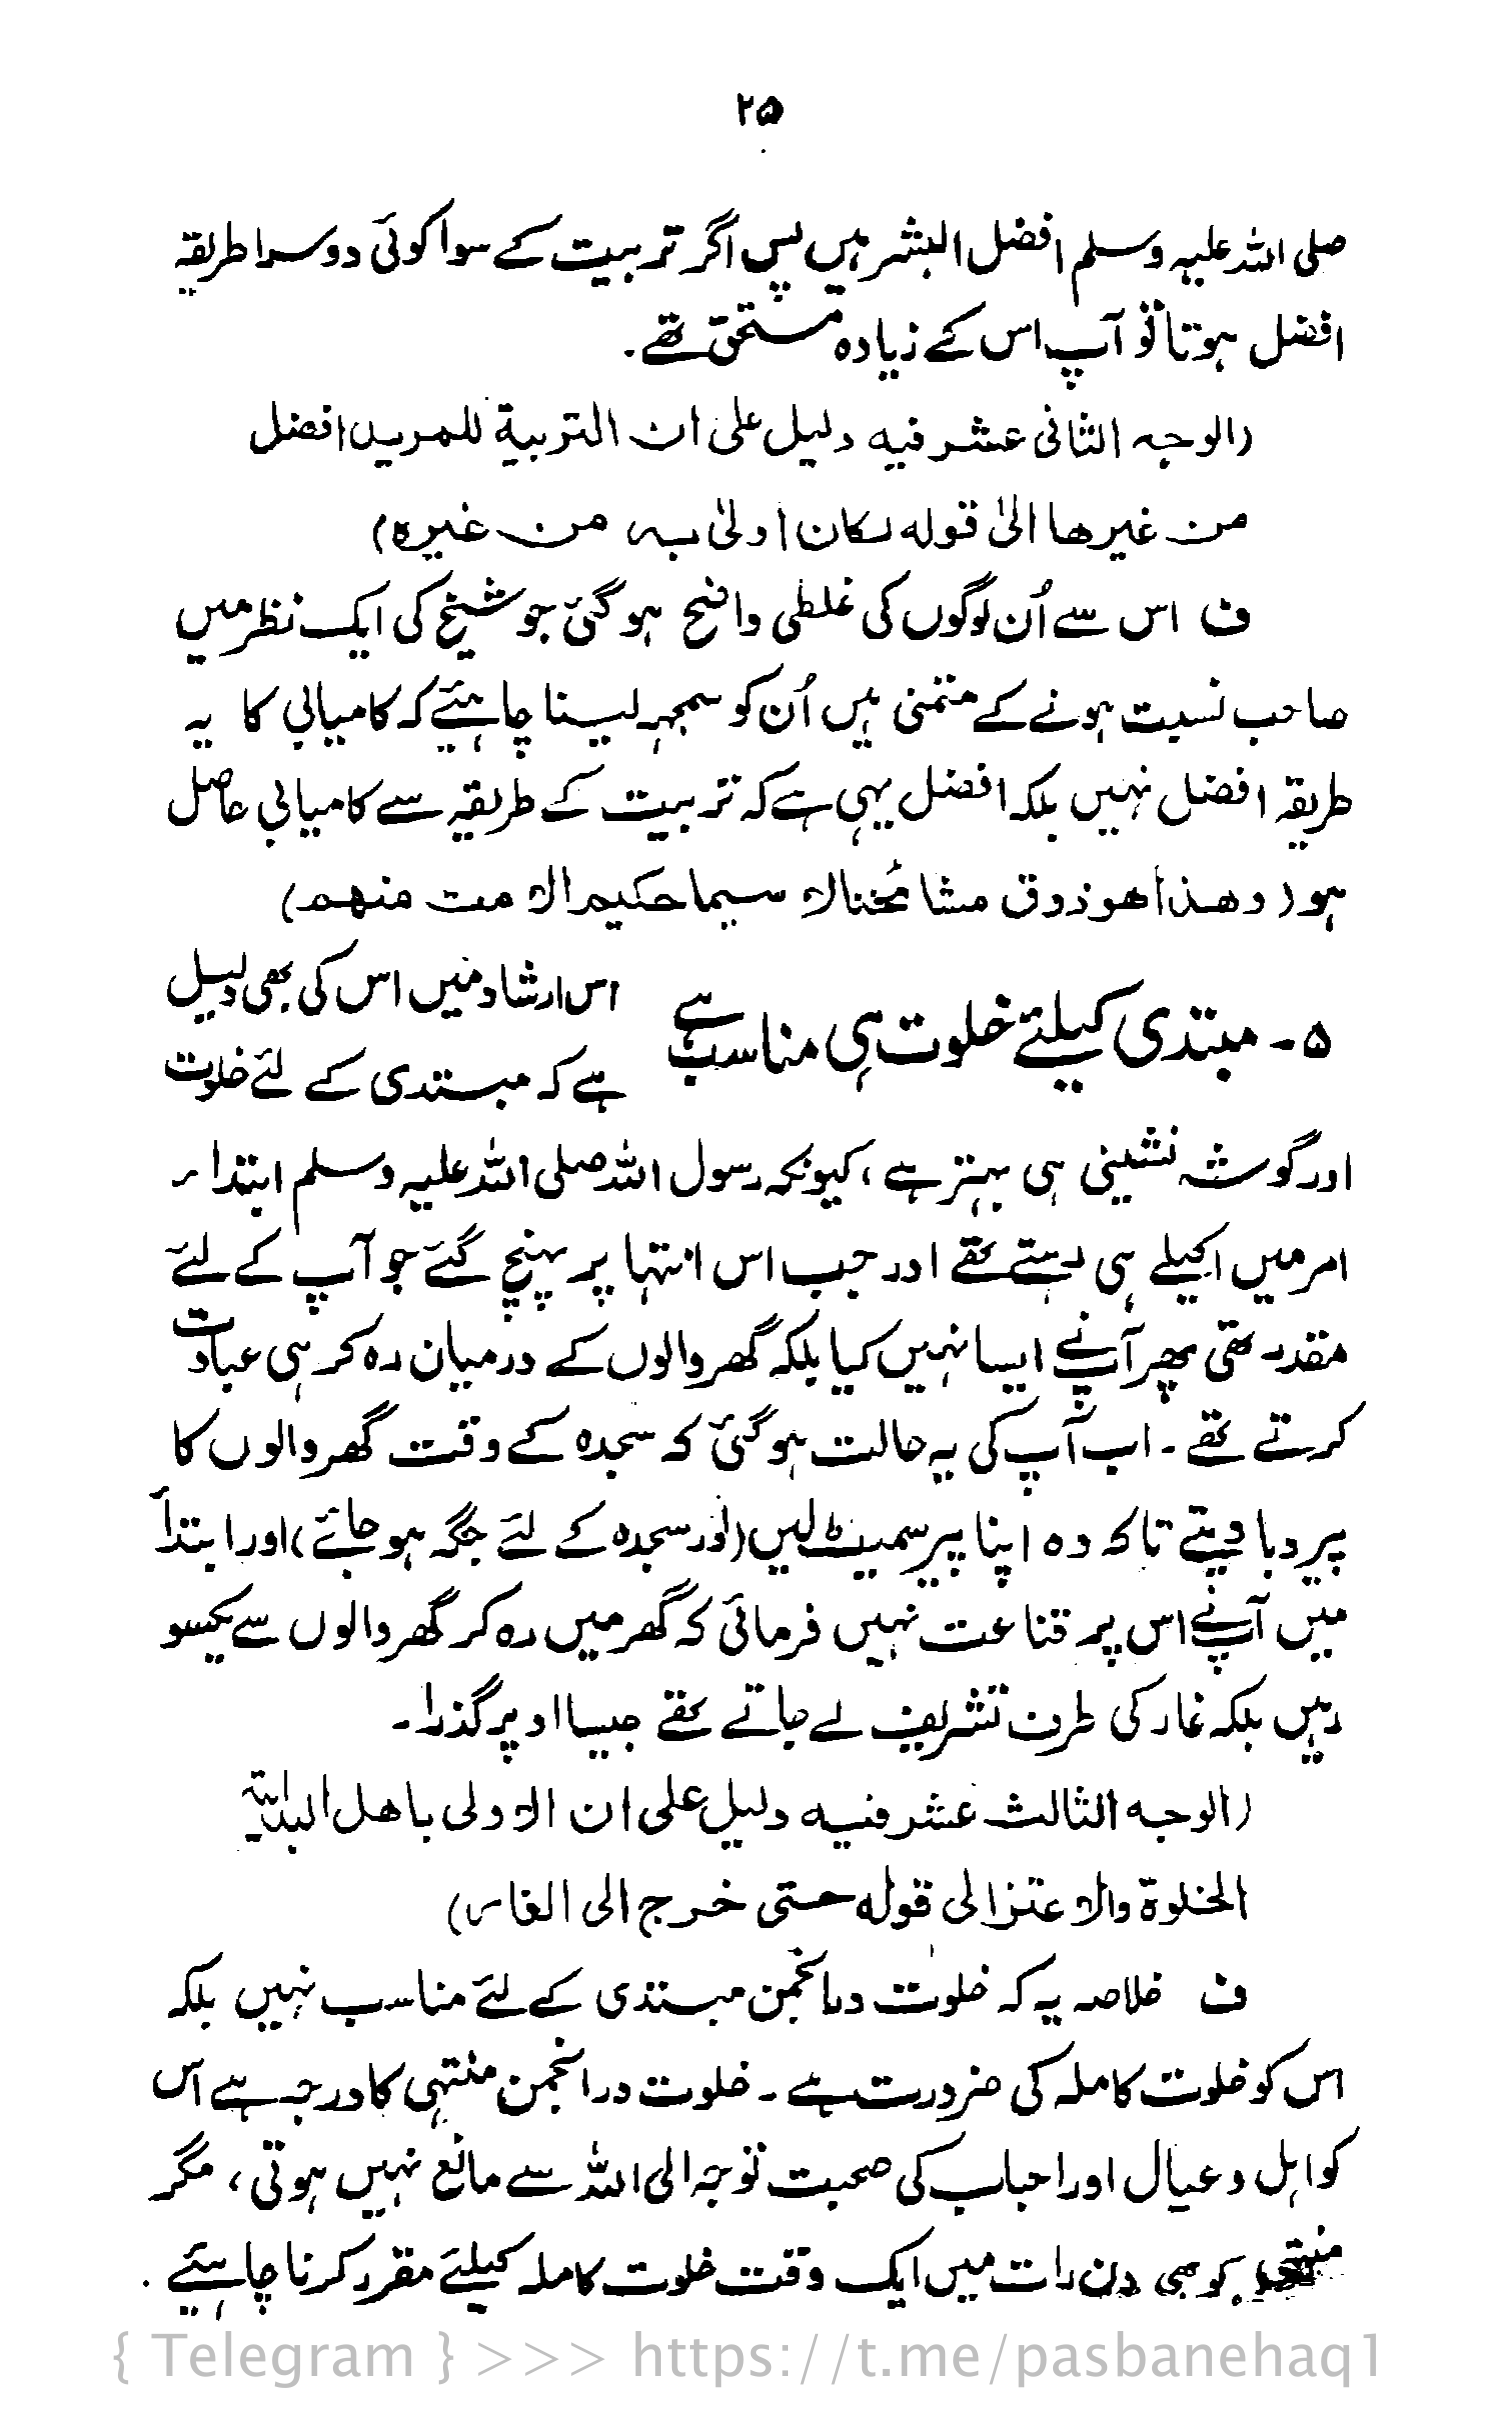 ۲۵
صلی اللہ علیہ وسلم افضل البشر ہیں پس اگر تربیت کے سوا کوئی دوسرا طریقہ
افضل ہوتا تو آپ اس کے زیادہ مستحق تھے۔
(الوجہ الثانی عشر فیہ دلیل علی ان التربیۃ للمرید افضل
من غیرھا الیٰ قولہ لکان اولیٰ بہ من غیرہ)
ف اس سے اُن لوگوں کی غلطی واضح ہوگئی جو شیخ کی ایک نظر میں
صاحب نسبت ہونے کے متمنی ہیں اُن کو سمجھ لینا چاہئیے کہ کامیابی کا یہ
طریقہ افضل نہیں بلکہ افضل یہی ہے کہ تربیت کے طریقہ سے کامیابی حاصل
ہو (وھذا ھو ذوق مشائخنا لا سیما حکیم الامت منھم)
۵۔ مبتدی کیلئے خلوت ہی مناسب ہے
اس ارشاد میں اس کی بھی دلیل
ہے کہ مبتدی کے لئے خلوت
اور گوشہ نشینی ہی بہتر ہے، کیونکہ رسول اللہ صلی اللہ علیہ وسلم ابتداء
امر میں اکیلے ہی رہتے تھے اور جب اس انتہا پر پہنچ گئے جو آپ کے لئے
مقدر تھی پھر آپنے ایسا نہیں کیا بلکہ گھر والوں کے درمیان رہ کر ہی عبادت
کرتے تھے۔ اب آپ کی یہ حالت ہوگئی کہ سجدہ کے وقت گھر والوں کا
پیر دبا دیتے تاکہ وہ اپنا پیر سمیٹ لیں (اور سجدہ کے لئے جگہ ہو جائے) اور ابتدأ
میں آپنے اس پر قناعت نہیں فرمائی کہ گھر میں رہ کر گھر والوں سے یکسو
رہیں بلکہ غار کی طرف تشریف لے جاتے تھے جیسا اوپر گذرا۔
(الوجہ الثالث عشر فیہ دلیل علی ان الاولی باھل البدایۃ
الخلوۃ والاعتزالی قولہ حتی خرج الی الغاس)
ف خلاصہ یہ کہ خلوت در انجمن مبتدی کے لئے مناسب نہیں بلکہ
اس کو خلوت کاملہ کی ضرورت ہے۔ خلوت در انجمن منتہی کا درجہ ہے اس
کو اہل و عیال اور احباب کی صحبت توجہ الی اللہ سے مانع نہیں ہوتی، مگر
منتہی کو بھی دن رات میں ایک وقت خلوت کاملہ کیلئے مقرر کرنا چاہئیے۔
{ Telegram } >>> https://t.me/pasbanehaq1